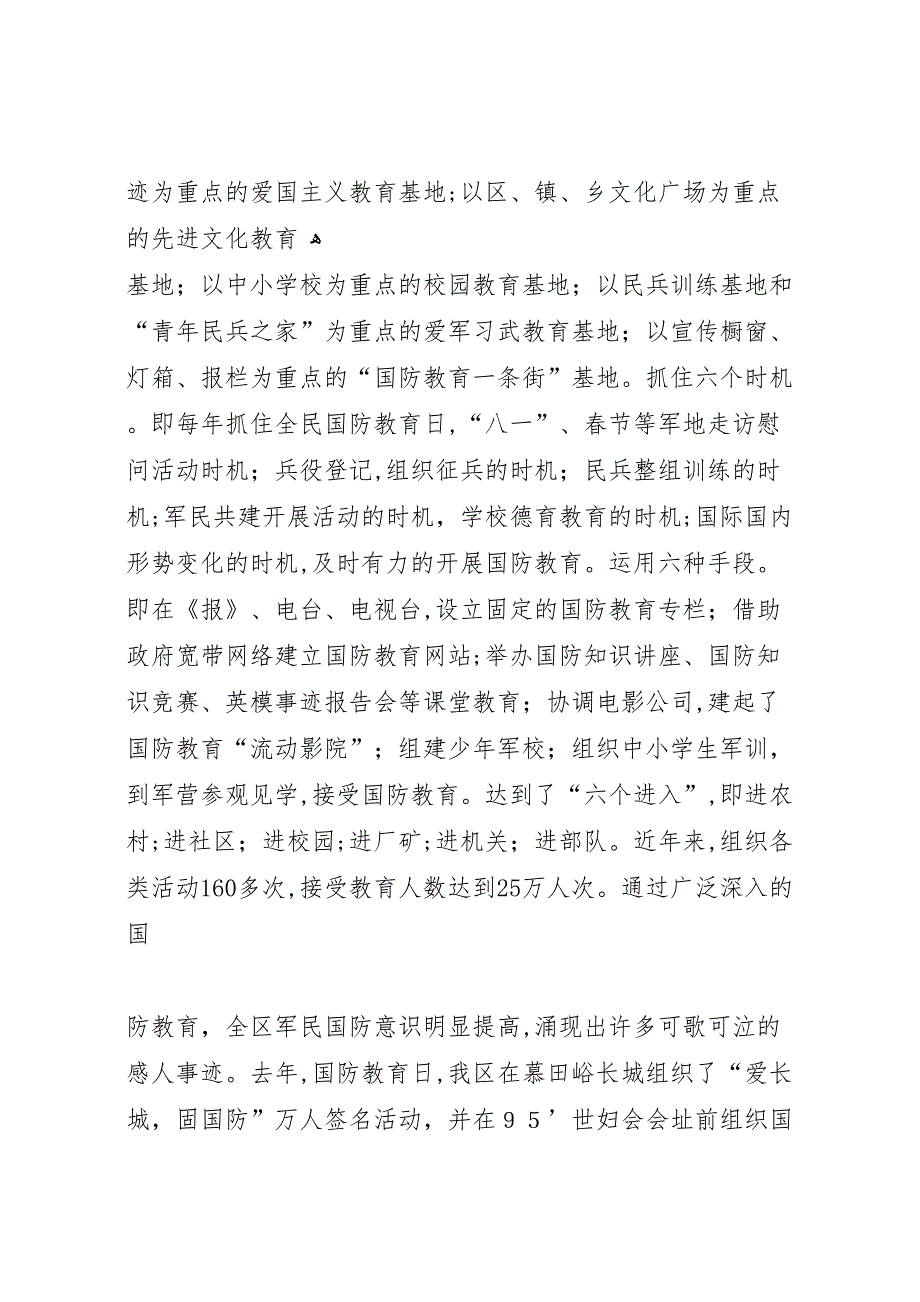 迹为重点的爱国主义教育基地;以区、镇、乡文化广场为重点
的先进文化教育 ﻫ
基地；以中小学校为重点的校园教育基地；以民兵训练基地和
“青年民兵之家”为重点的爱军习武教育基地；以宣传橱窗、
灯箱、报栏为重点的“国防教育一条街”基地。抓住六个时机
。即每年抓住全民国防教育日,“八一”、春节等军地走访慰
问活动时机；兵役登记,组织征兵的时机；民兵整组训练的时
机;军民共建开展活动的时机，学校德育教育的时机;国际国内
形势变化的时机,及时有力的开展国防教育。运用六种手段。
即在《报》、电台、电视台,设立固定的国防教育专栏；借助
政府宽带网络建立国防教育网站;举办国防知识讲座、国防知
识竞赛、英模事迹报告会等课堂教育；协调电影公司,建起了
国防教育“流动影院”；组建少年军校；组织中小学生军训，
到军营参观见学,接受国防教育。达到了“六个进入”,即进农
村;进社区；进校园;进厂矿;进机关；进部队。近年来,组织各
类活动160多次,接受教育人数达到25万人次。通过广泛深入的
国
防教育，全区军民国防意识明显提高,涌现出许多可歌可泣的
感人事迹。去年,国防教育日,我区在慕田峪长城组织了“爱长
城，固国防”万人签名活动，并在９５’世妇会会址前组织国